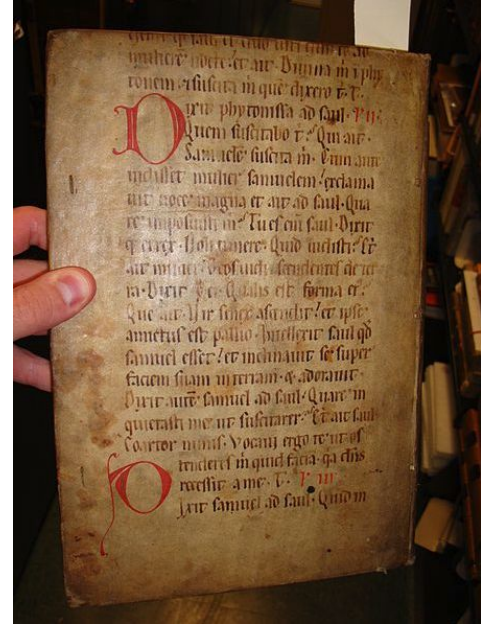 muliere nocte et ait Diuina m i phy
tonem et suscita m que dixero t. T.
Dixit phytonissa ad saul.
Quem suscitabo t Qui ait
Samuele suscita m. Cum aute
uidisset mulier samuelem exclama
uit uoce magna et ait ad saul. Qua
re imposuisti m Tu es eni saul. Dixit
q ei rex. Noli timere. Quid uidisti Et
ait mulier Deos uidi ascendentes de ter
ra. Dixit Qualis est forma ei
Que ait. Vir senex ascendit et ipse
amictus est pallio. Intellexit saul qd
samuel esset et inclinauit se super
faciem suam in terram adorauit.
Dixit aute samuel ad saul. Quare in
quietasti me ut suscitarer. Et ait saul
Coartor nimis. Vocaui ergo te ut os
tenderes m quid facia. qa dns
recessit a me. T.
Dixit samuel ad saul. Quid in